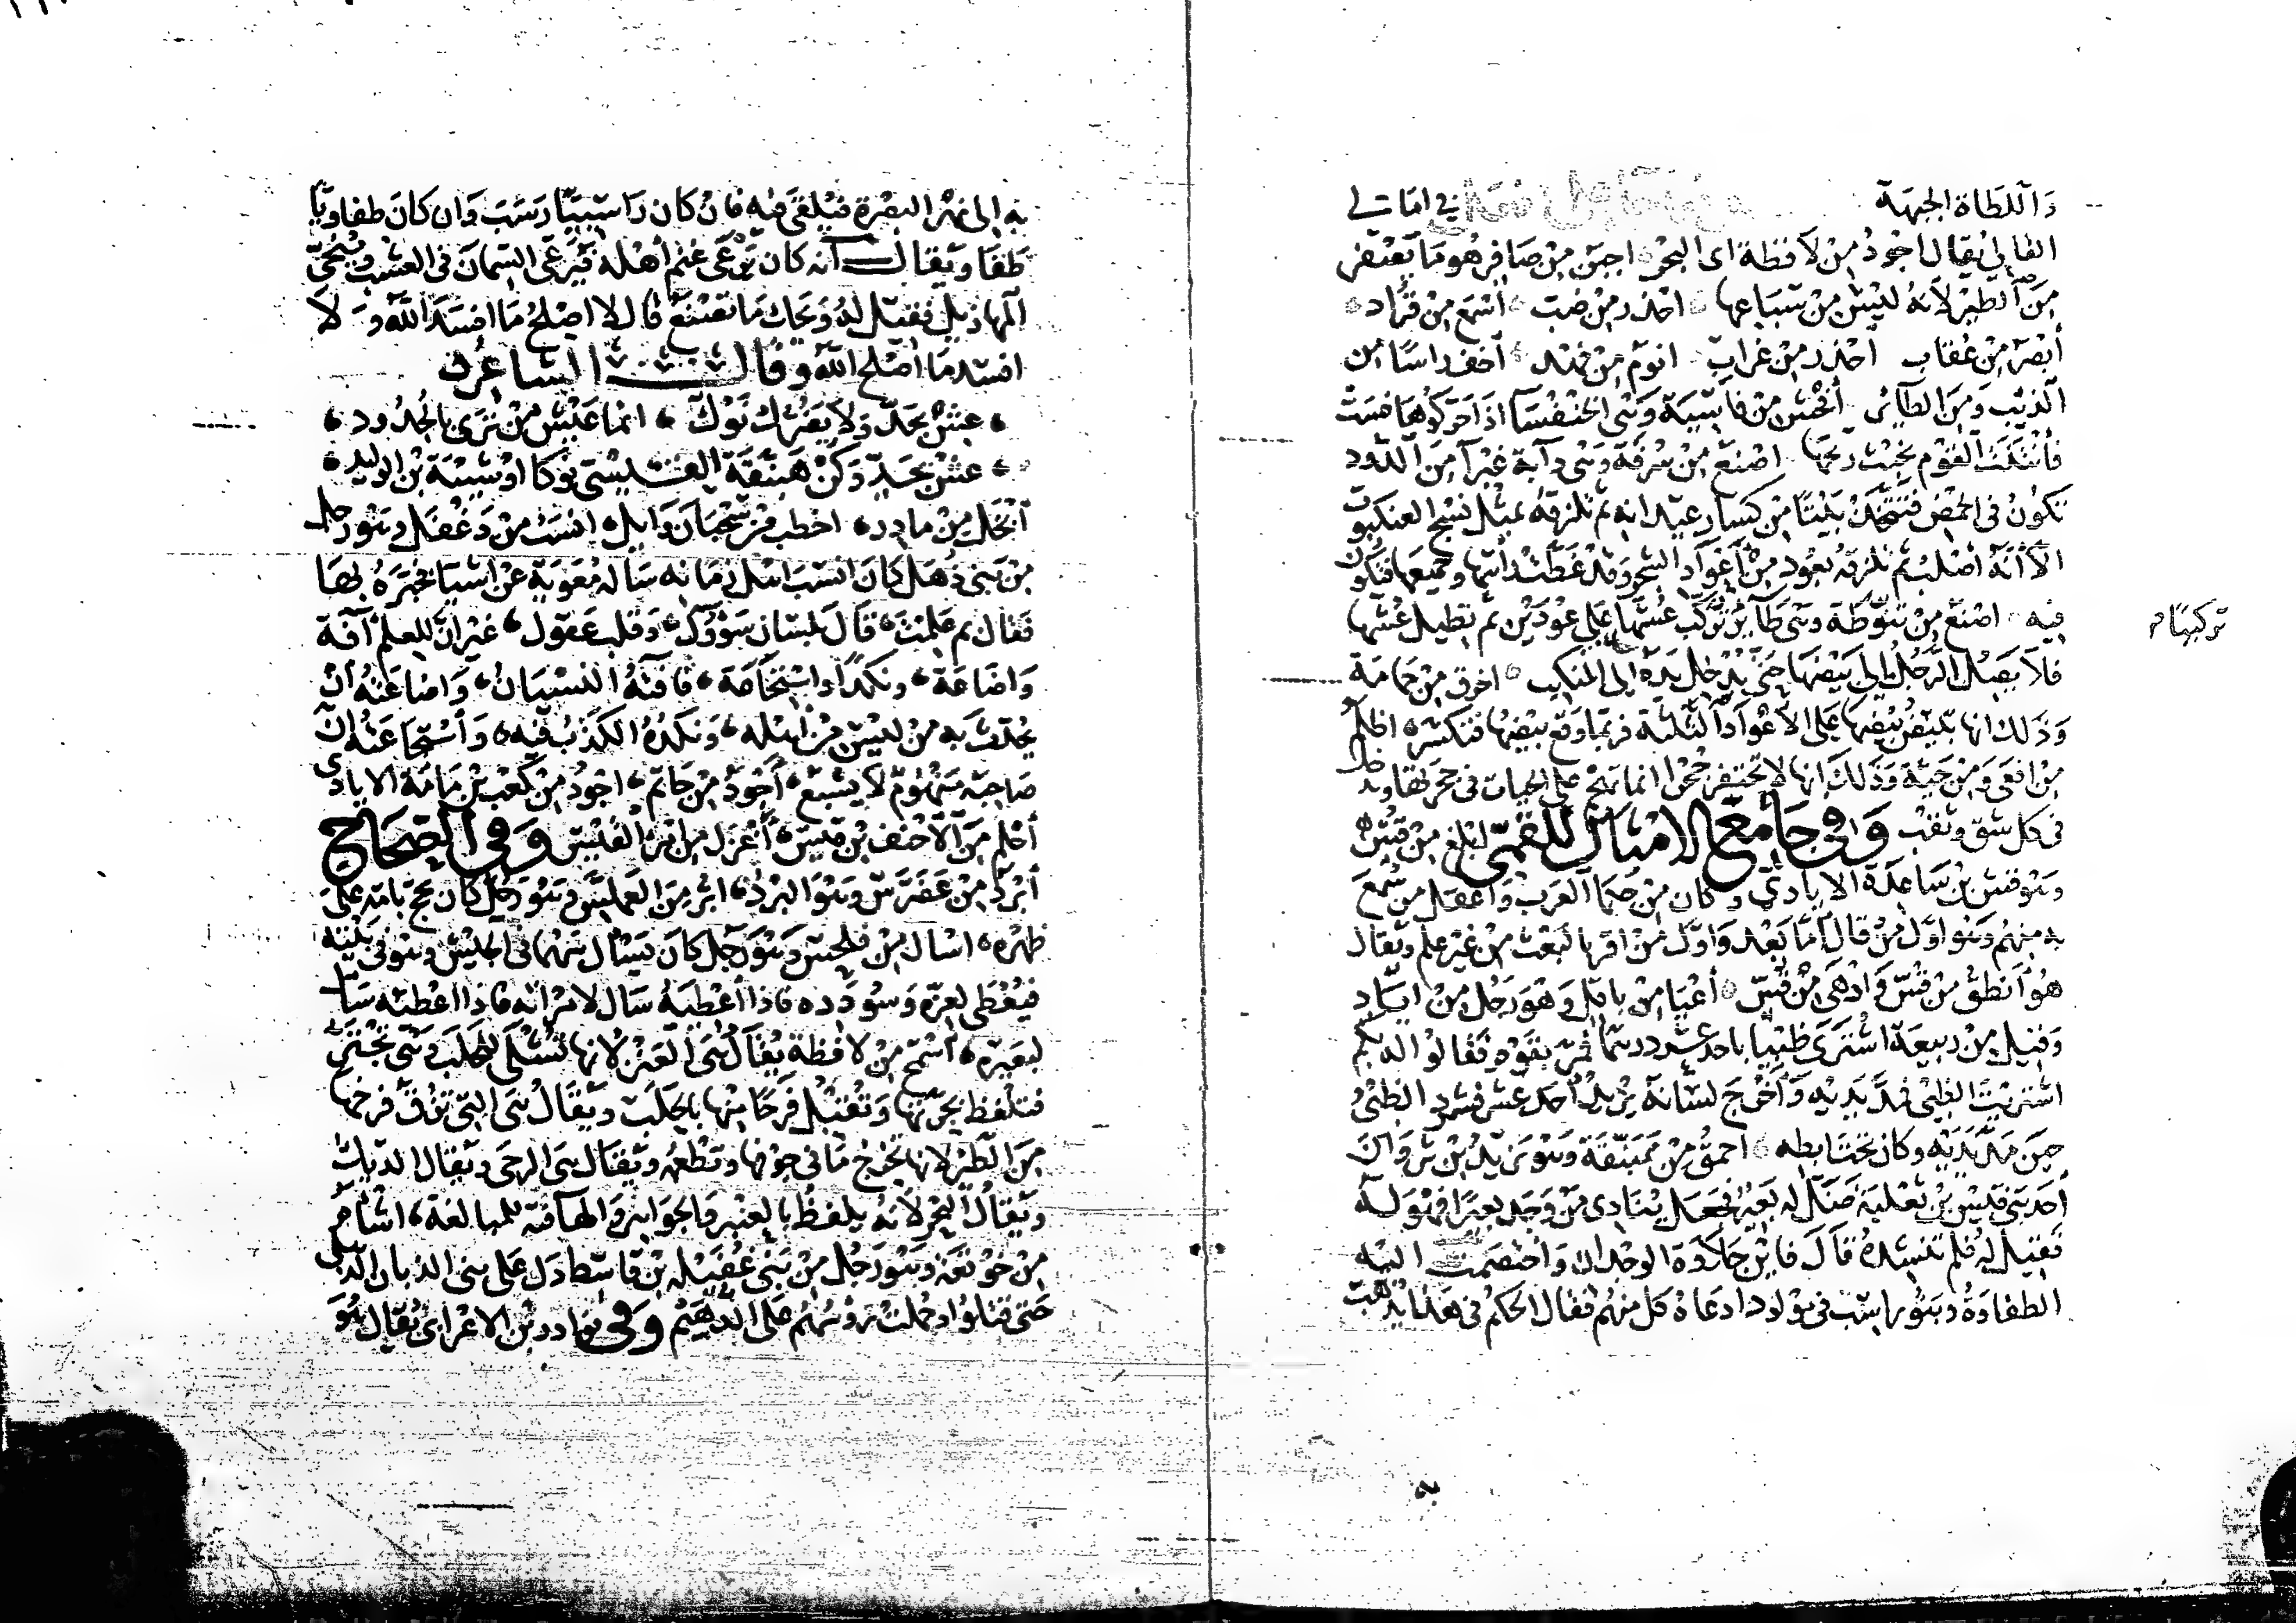 وَاللَّطَاةُ الجبهَة في امَالى
القالى يُقال اجْودُ منْ لَافظة اى البَحْر اجبَن مِنْ صَافِر هُوَ مَا يَصْفر
مِنَ الطّير لَانهُ ليْسَ مِنْ سِبَاعِها احْذر مِنْ ضَبّ أسْمَع مِن قُرَاد
أبْصَر مِن عُقاب احْذر مِنْ غرابٍ انوَم مِنْ فهْد أخَفّ راسًا مِن
الذئب وَمِنَ الطائر أفْحَش مِنْ فَاسِيَة وَهْىَ الخنفسَا اذا حَرّكُوهَا فسَتْ
فأنْتَنَتْ القوْم بخبْث ريحها اصْنَع مِنْ سُرْفة وَهْى دَابة غَبْرَا مِنَ الدّود
تكُونُ فى الحَمْض فتتّخذ بَيْتًا مِن كسَار عيدَانه ثم تلزقهُ بمثل نسْج العنكبوت
الّا أنّهُ أصْلَب ثم تلزقه بعُود مِنْ أعْوَاد الشجَر وَقدْ غَطّتْ رَاسَها وجميعَها فتكون
فيه اصْنَع مِنْ تنَوّطة وهْى طَائر تُركّب عُشّهَا عَلى عُودَيْن ثم تطيل عُشّهَا
تركيبًا م
فلا يَصِلُ الرّجُل إلى بَيْضهَا حَتّى يُدْخل يَدَهُ الى المنْكب اخرق مِنْ حَمامَة
وَذَلك انها تبيضُ بَيْضهَا عَلى الأعْوَادِ الثلثة فربّما وَقع بَيْضهَا فتكسّر اظلمُ
مِنْ افعَى وَمِنْ حَيّة وَذَلك انها لا تحتفرُ جُحْرا انما تَهْجم على الحيات فى جحرتها وتدخل
فى كل شق وثقْب وَفى جَامع الامثال للقمّى ابْلغ مِنْ قُسّ
وَهُوَ قسّ بْن سَاعِدَة الايَادىّ وكان مِنْ حُكمَا العَرَب وَأعْقل مَن سُمِعَ
به مِنهُم وَهُوَ اوّل مَنْ قال أمّا بَعْد وَاوّل مَنْ اقر بالبَعْث مِنْ غيْر عِلم ويُقال
هُوَ أنطَق مِنْ قُسّ وَأدْهَى مِنْ قُسّ أعْيَا مِن بَاقل وَهوَ رَجُل مِنْ ايَادٍ
وَقيل مِنْ رَبيعَة اشْترَى ظبْيا باحَد عَشر درهمًا فمَرّ بقوْم فقالوا له بكم
اشترَيْت الظبْى فمَدّ يَدَيْه وَأخْرَجَ لسَانَه يُريدُ أحَد عَشر فشرد الظبْىُ
حِينَ مَدّ يَدَيْه وكان تحتَ ابطه احْمَقُ مِنْ هَبَنّقَة وَهُوَ يَزيدُ بْن ثَرْوَان
أحَد بَنى قيْس بْن ثعْلبَة ضَلّ له بَعيرٌ فجعَل يُنادِى مَنْ وَجَد بعيرًا فهُوَ لهُ
فقيلَ لهُ فلم تنشدهُ قال فاين حَلاوَة الوجْدان وَاختصَمَت اليْه
الطفاوَةُ وَبَنُو رَاسِب فى مَوْلود ادعَاهُ كل مِنهُم فقال الحكمُ فى هَذا يُذهَب
به
به الى نَهْر البَصْرة فيُلقَى فيه فان كان رَاسِبيّا رَسَبَ وَان كانَ طفاويّا
طَفَا ويُقال أنه كان يَرْعَى غنم أهْله فيَرْعَى السّمَانَ فى العشب وَيُنحّى
المهازيل فقيل لهُ وَيحَك مَا تصْنَع قال لا اصْلحُ مَا افسَدَ الله وَلَا
افسد مَا اصْلح الله وقال الشاعر
عِشْ بجَدّ وَلا يَضُرّك نَوْك انما عَيْش مَنْ تَرى بالجُدُود
عِشْ بجَدّ وَكُنْ هَبَنّقَة القَيْسىّ نَوْكا أوْ شيْبَة بْن الوليد
أبْخَل مِنْ مادر اخطب مِنْ سَحْبَان وَايل انسَب مِنْ دَغْفل وهو رجل
مِن بَنى ذُهَل كَانَ انسَبَ اهْل زمَانه سَالهُ مُعَويَة عَنْ اشيَا فخبَرَهُ بهَا
فقال بم عَلِمْتَ قالَ بلسَان سَؤُول وَقلب عَقول غَيْر انّ للعِلم آفَة
وَاضَاعَة ونكدًا وَاسْتِجَاعَة فآفتُهُ النسْيَان وَاضاعَتهُ انْ
يُحدّث به مَنْ ليْسَ مِنْ أهْله وَنكدُهُ الكَذبُ فيه وَاسْتجَاعَتهُ انّ
صَاحِبَهُ مَنْهُومٌ لا يشْبَع أجْوَد مِنْ حَاتم اجْودُ مِنْ كَعْب بْن مَامَة الايادى
أحْلم مِنَ الاحْنف بْن قَيْس أغْزَل مِن امْرَئ القيْس وَفى الصِّحَاح
أبْرَد مِنْ عَضْرَس وهُوَ البَرَدُ ابرّ مِنَ العَملّس وهُوَ رجل كان يحج بامّه على
ظهْره اسْال مِنْ فلحَس وَهُوَ رَجُل كانَ يَسْال سَهْما فى الجَيْش وهُوَ فى بَيْته
فيُعْطَى لعزّه وَسُودَده فاذا أعْطِيَهُ سَال لامْرَاته فاذا اعْطيَه سَال
لبَعيره أسْمَح مِنْ لافظة يُقالُ هْىَ العَنْز لانها تُشْلَى للحَلب وهْى تجْتَرّ
فتلفظ بجرّتها وَتُقبل فرَحًا مِنْها بالحلَب ويُقالُ هْىَ التى تزُقّ فرْخها
مِنَ الطّيْر لانها تُخْرج مَا فى جَوْفها وتطْعمه ويُقال هْىَ الرحَى ويُقال الديك
ويُقالُ البَحْر لانهُ يلفظُ بالعنْبر وَالجوَاهر وَالهَا فيه للمبالغة اشْأم
مِن خَوْتَعَة وَهُوَ رَجُل مِنْ بَنى غُفَيْلة بْن قاسط دَلّ عَلى بَنى الزبان الذهلى
حَتى قتلوُا وَحُملت رؤوسُهُم عَلى الدّهَيْم وَفى نوَادر بْن الاعْرابى يُقال هُوَ